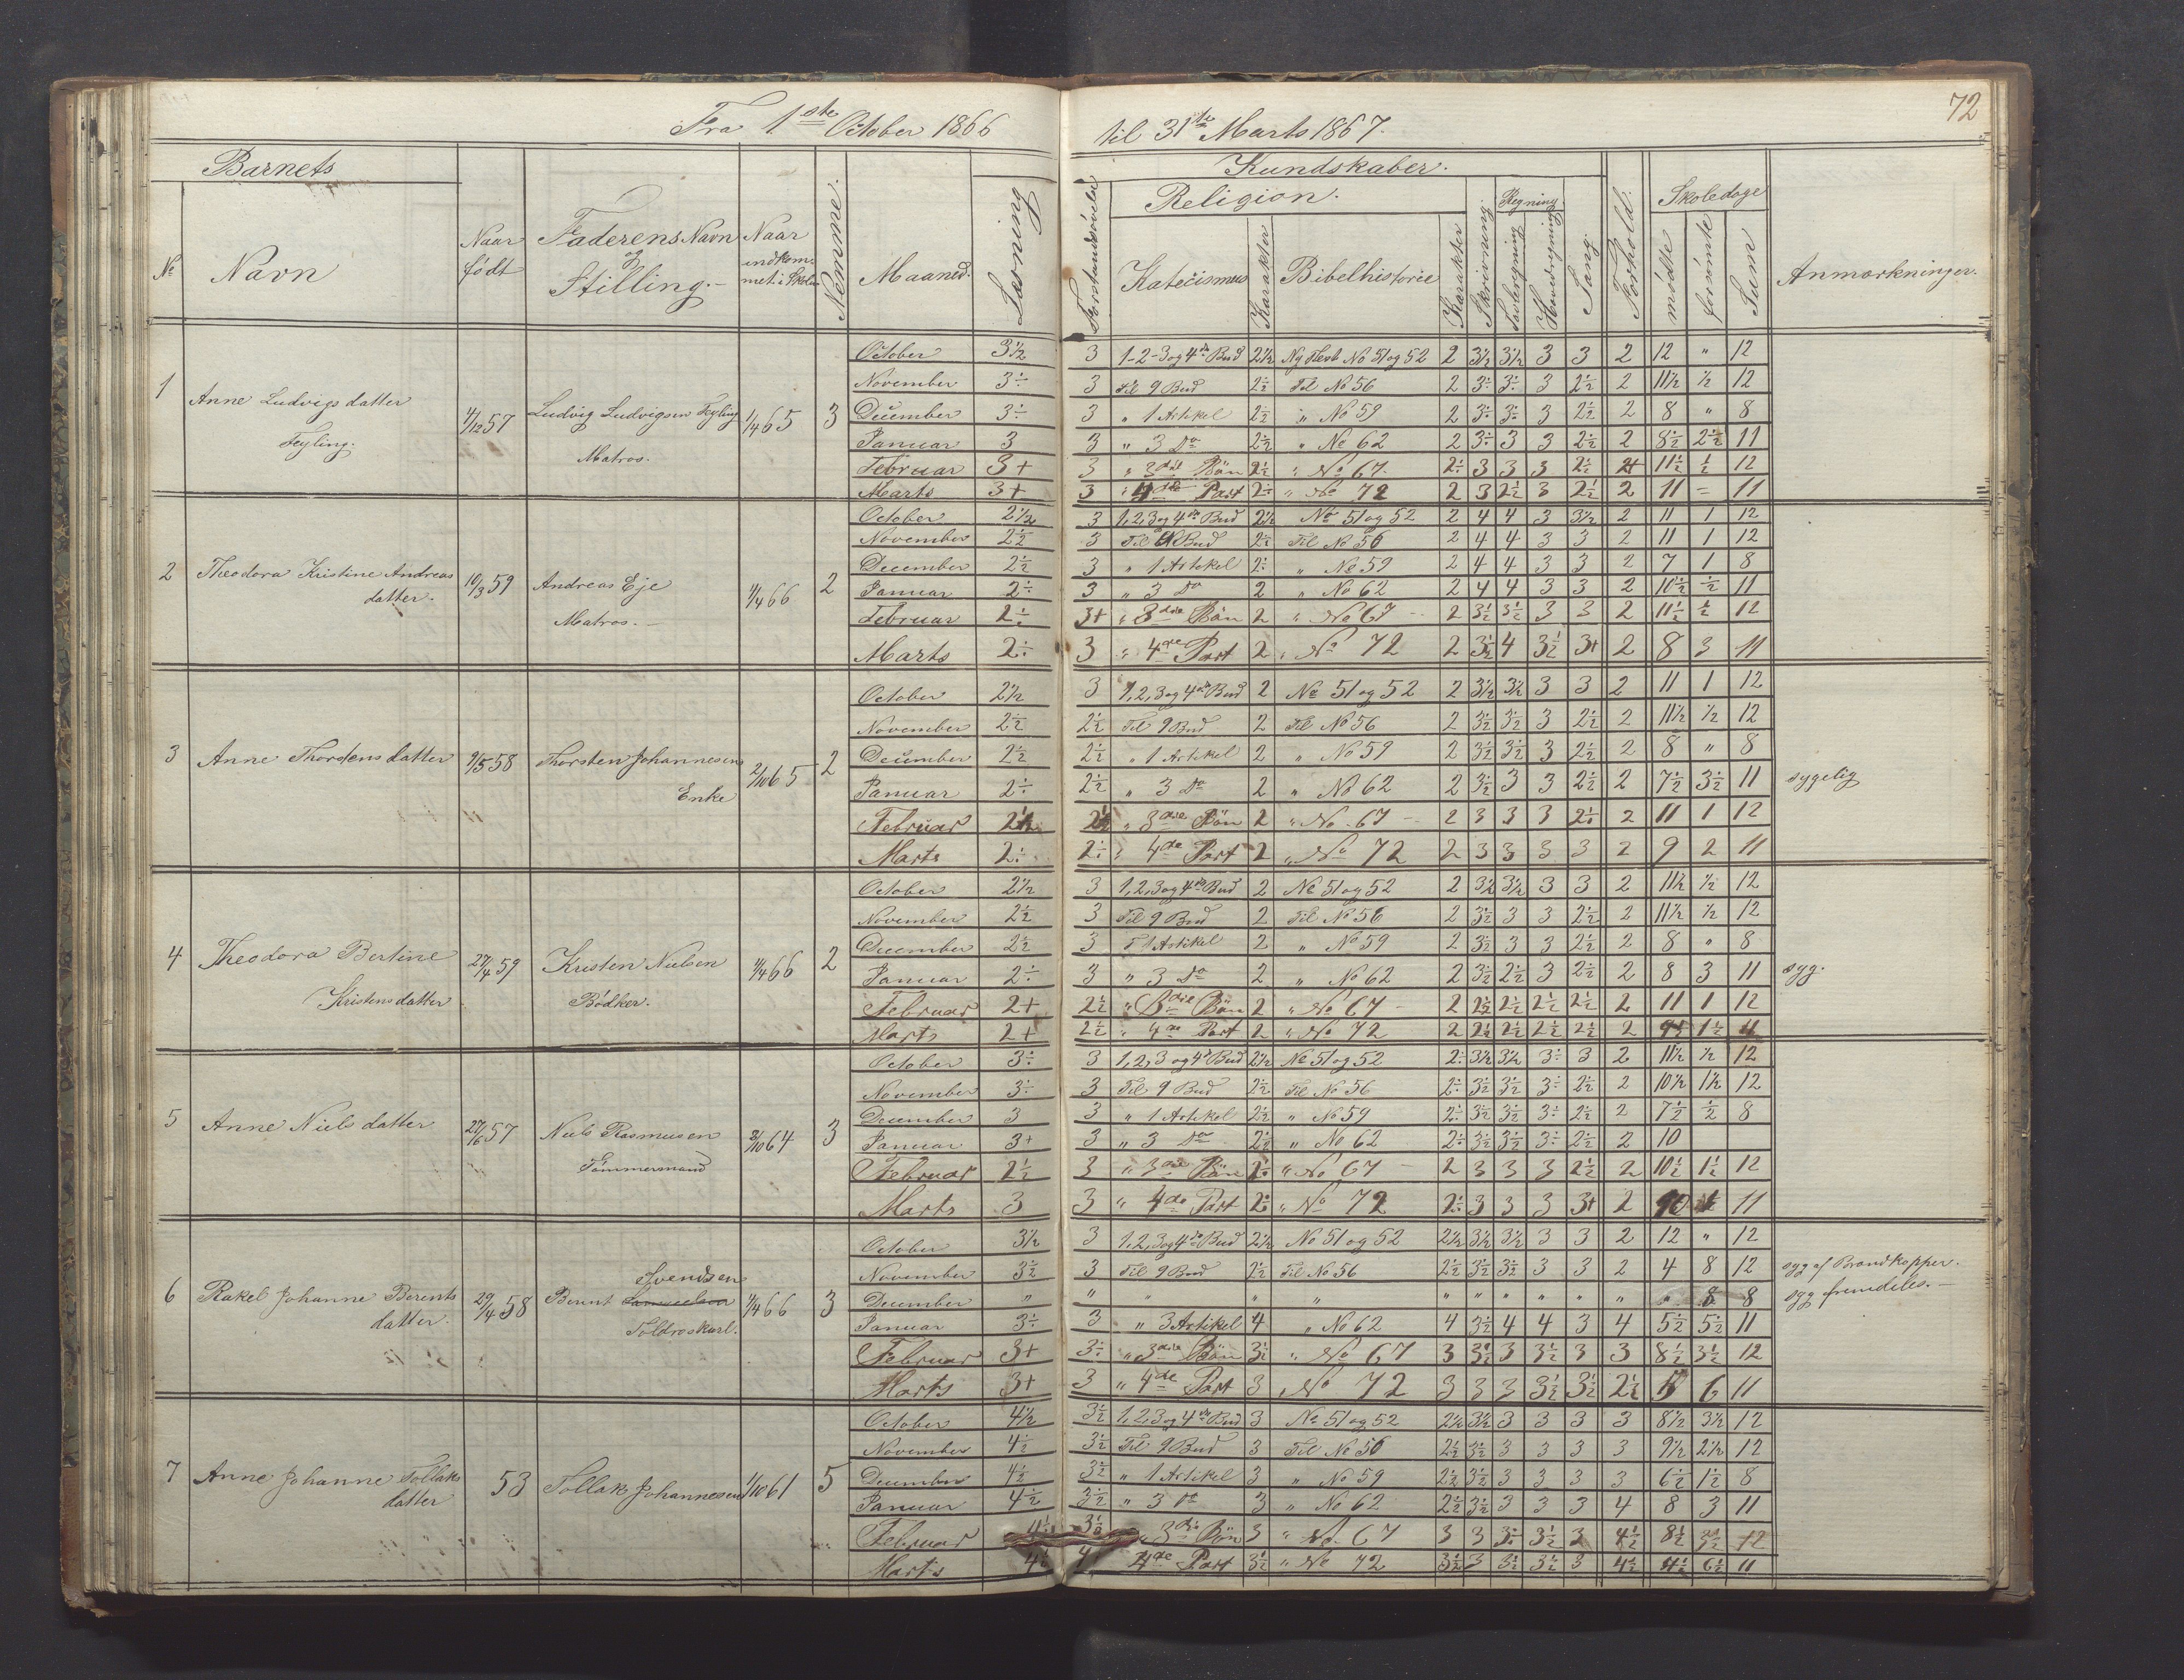 72
Fra 1ste October 1866 til 31te Marts 1867.
Barnets
Kundskaber.
Religion.
Regning
Skoledage
No
Navn
Naar født
Faderens Navn og Stilling.
Naar indkommet i Skole
Nemme.
Maaned.
Læsning
Forstandsøvelse
Katecismus
Karakter
Bibelhistorie
Karakter
Skrivning.
Tavleregning
Hovedregning
Sang.
Forhold.
mødte
forsømte
Sum
Anmærkninger.
1 Anne Ludvigsdatter Feyling. 4/12 57 Ludvig Ludvigsen Feyling Matros. 1/4 65 3
October 3½ 3 1-2-3 og 4de Bud 2½ Ny Test. No 51 og 52 2 3½ 3½ 3 3 2 12 " 12
November 3÷ 3 til 9 Bud 2½ Til No 56 2 3÷ 3÷ 3 2½ 2 11½ ½ 12
December 3÷ 3 " 1 Artikel 2½ " No 59 2 3÷ 3÷ 3 2½ 2 8 " 8
Januar 3 3 " 3 Do 2½ " No 62 2 3÷ 3 3 2½ 2 8½ 2½ 11
Februar 3+ 3 " 3die Bøn 2½ " No 67 2÷ 3 3 3 2½ 2+ 11½ ½ 12
Marts 3+ 3 " 4de Part 2÷ " No 72 2 3 2½ 3 2½ 2 11 – 11
2 Theodora Kristine Andreas datter. 10/3 59 Andreas Eje Matros. 1/4 66 2
October 2½ 3 1,2,3 og 4de Bud 2½ No 51 og 52 2 4 4 3 3½ 2 11 1 12
November 2½ 3 Til 9 Bud 2½ Til No 56 2 4 4 3 3 2 11 1 12
December 2½ 3 " 1 Artikel 2÷ " No 59 2 4 4 3 3 2 7 1 8
Januar 2÷ 3 " 3 Do 2 " No 62 2 4 4 3 3 2 10½ ½ 11
Februar 2÷ 3+ " 3die Bøn 2 " No 67 2 3½ 3½ 3 3 2 11½ ½ 12
Marts 2÷ 3 " 4de Part 2 " No 72 2 3½ 4 3½ 3+ 2 8 3 11
3 Anne Thordensdatter 9/5 58 Thorsten Johannesens Enke 2/10 65 2
October 2½ 3 1,2,3 og 4de Bud 2 No 51 og 52 2 3½ 3½ 3 3 2 11 1 12
November 2½ 2½ Til 9 Bud 2 Til No 56 2 3½ 3½ 3 2½ 2 11½ ½ 12
December 2½ 2½ " 1 Artikel 2 " No 59 2 3½ 3½ 3 2½ 2 8 " 8
Januar 2÷ 2½ " 3 Do 2 " No 62 2 3½ 3 3 2½ 2 7½ 3½ 11 sygelig
Februar 2½ 2½ " 3die Bøn 2 " No 67 2 3 3 3 2÷ 2 11 1 12
Marts 2÷ 2÷ " 4de Part 2 " No 72 2 3 3 3 3 2 9 2 11
4 Theodora Bertine Kristensdatter 27/4 59 Kristen Nielsen Bødker. 1/4 66 2
October 2½ 3 1,2,3 og 4de Bud 2 No 51 og 52 2 3½ 3½ 3 3 2 11½ ½ 12
November 2½ 3 Til 9 Bud 2 Til No 56 2 3½ 3 3 2½ 2 11½ ½ 12
December 2½ 3 " 1 Artikel 2 " No 59 2 3½ 3 3 2½ 2 8 " 8
Januar 2÷ 3 " 3 Do 2 " No 62 2 3½ 2½ 3 2½ 2 8 3 11 syg.
Februar 2+ 2½ " 3die Bøn 2 " No 67 2 2½ 2½ 2½ 2½ 2 11 1 12
Marts 2+ 2½ " 4de Part 2 " No 72 2 2½ 2½ 2½ 2½ 2 9½ 1½ 11
5 Anne Nielsdatter 27/6 57 Niels Rasmusen Tømmermand 3/10 64 3
October 3÷ 3 1,2,3 og 4de Bud 2½ No 51 og 52 2÷ 3½ 3½ 3÷ 3 2 11½ ½ 12
November 3÷ 3 Til 9 Bud 2½ Til No 56 2÷ 3½ 3½ 3÷ 2½ 2 10½ 1½ 12
December 3 3 " 1 Artikel 2½ " No 59 2÷ 3½ 3½ 3÷ 2½ 2 7½ ½ 8
Januar 3+ 3 " 3 Do 2½ " No 62 2÷ 3½ 3½ 3÷ 2½ 2 10
Februar 2½ 3 " 3die Bøn 2÷ " No 67 2 3 3 3 2½ 2 10½ 1½ 12
Marts 3 3 " 4de Part 2÷ " No 72 2÷ 3 3 3 3+ 2 10 1 11
6 Rakel Johanne Berents datter. 29/4 58 Berent Svendsen Toldroskarl. 1/4 66 3
October 3½ 3 1,2,3 og 4de Bud 2½ No 51 og 52 2½ 3½ 3½ 3 3 2 12 " 12
November 3½ 3 Til 9 Bud 2½ Til No 56 2½ 3½ 3½ 3 3 2 4 8 12 syg af Brandkopper.
December " " " " " " " " " " " " 8 8 syg fremdeles.
Januar 3÷ 3 " 3 Artikel 4 " No 62 4 3½ 4 4 3 4 5½ 5½ 11
Februar 3+ 3÷ " 3die Bøn 3½ " No 67 3 3½ 3 3½ 3 3 8½ 3½ 12
Marts 3+ 3 " 4de Part 3 " No 72 3 3 3 3½ 3½ 2½ 5 6 11
7 Anne Johanne Tollaks datter 53 Tollak Johannesen 1/10 61 5
October 4½ 3½ 1,2,3 og 4de Bud 3 No 51 og 52 2½ 3½ 3 3 3 3 8½ 3½ 12
November 4½ 3½ Til 9 Bud 3 Til No 56 2½ 3½ 3 3 3 3 9½ 2½ 12
December 4½ 3½ " 1 Artikel 3 " No 59 2½ 3½ 3 3 3 3 6½ 1½ 8
Januar 4½ 3½ " 3 Do 3 " No 62 2½ 3½ 3 3 3 4 8 3 11
Februar 4½ 3½ " 3die Bøn 3 " No 67 3 3 3÷ 3½ 3 4½ 8½ 3½ 12
Marts 4½ 4 4de Part 3½ " No 72 3½ 3 3½ 3½ 3 4½ 4½ 6½ 11